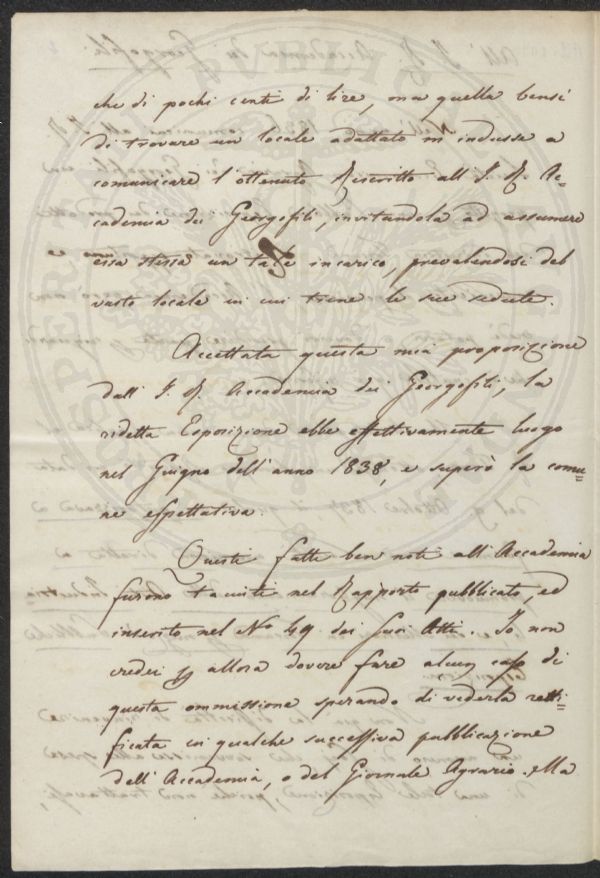 che di pochi centi di lire, ma quella bensì
di trovare un locale adattato m' indusse a
comunicare l'ottenuto Rescritto all' I. R. Ac=
cademia dei Georgofili, invitandola ad assumere
essa stessa un tale incarico, prevalendosi del
vasto locale in cui tiene le sue sedute.
Accettata questa mia proposizione
dall' I. R. Accademia dei Georgofili, la
ridetta Esposizione ebbe effettivamente luogo
nel Giugno dell' anno 1838, e superò la comu=
ne espettativa.
Questi fatti ben noti all' Accademia
furono taciuti nel Rapporto pubblicato, ed
inserito nel N.º 49 dei suoi Atti. Io non
credei allora dovere fare alcun caso di
questa ommissione sperando di vederla retti=
ficata in qualche successiva pubblicazione
dell' Accademia, o del Giornale Agrario. Ma